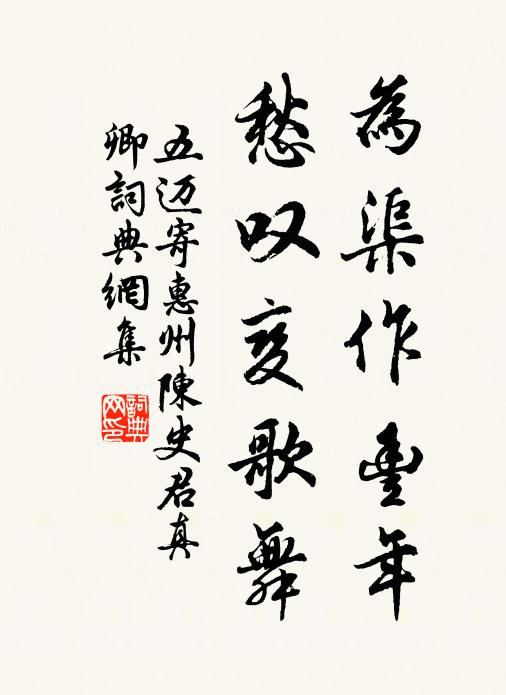 為渠作豊年
愁叹变歌舞
五迈寄惠州陳史君真
卿詞典網集
詞典
网印